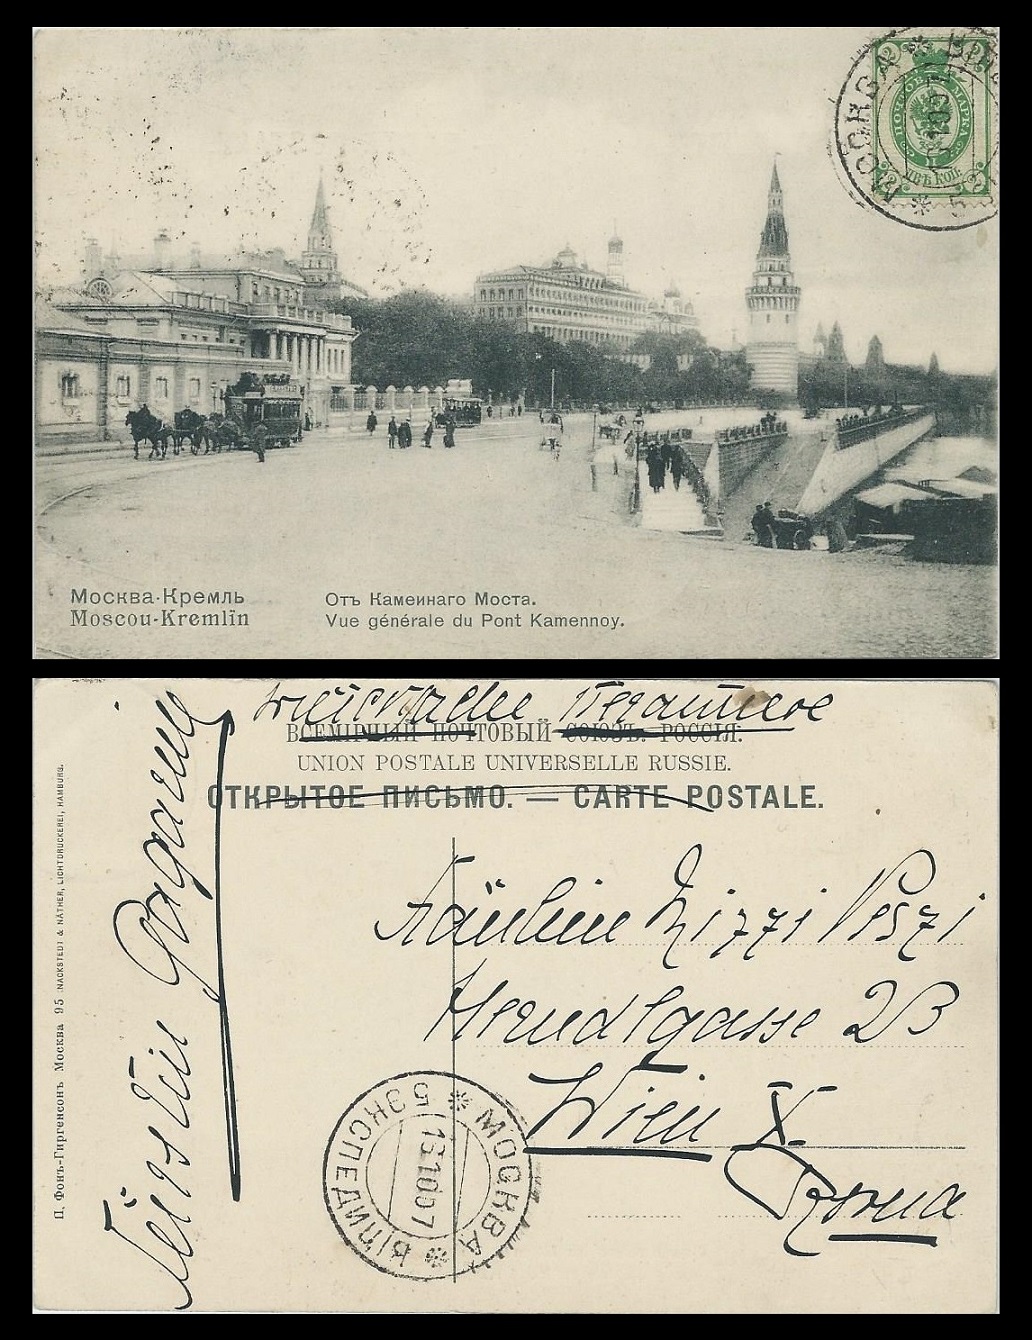 МОСКВА
ПОЧТОВАЯ МАРКА
ДВѢ КОП.
Москва-Кремль
Moscou-Kremlïn
Отъ Камеинаго Моста.
Vue générale du Pont Kamennoy.
ВСЕМІРНЫЙ ПОЧТОВЫЙ СОЮЗЪ. РОССІЯ.
UNION POSTALE UNIVERSELLE RUSSIE.
ОТКРЫТОЕ ПИСЬМО. — CARTE POSTALE.
Fürstin Gagarine
П. Фонъ-Гиргенсонъ Москва 95 NACKSTEDT & NÄTHER, LICHTDRUCKEREI, HAMBURG.
Fräulein Lizzi
gasse 23
Wien X
МОСКВА
5 ЭКСПЕДИЦІЯ
13.10.07